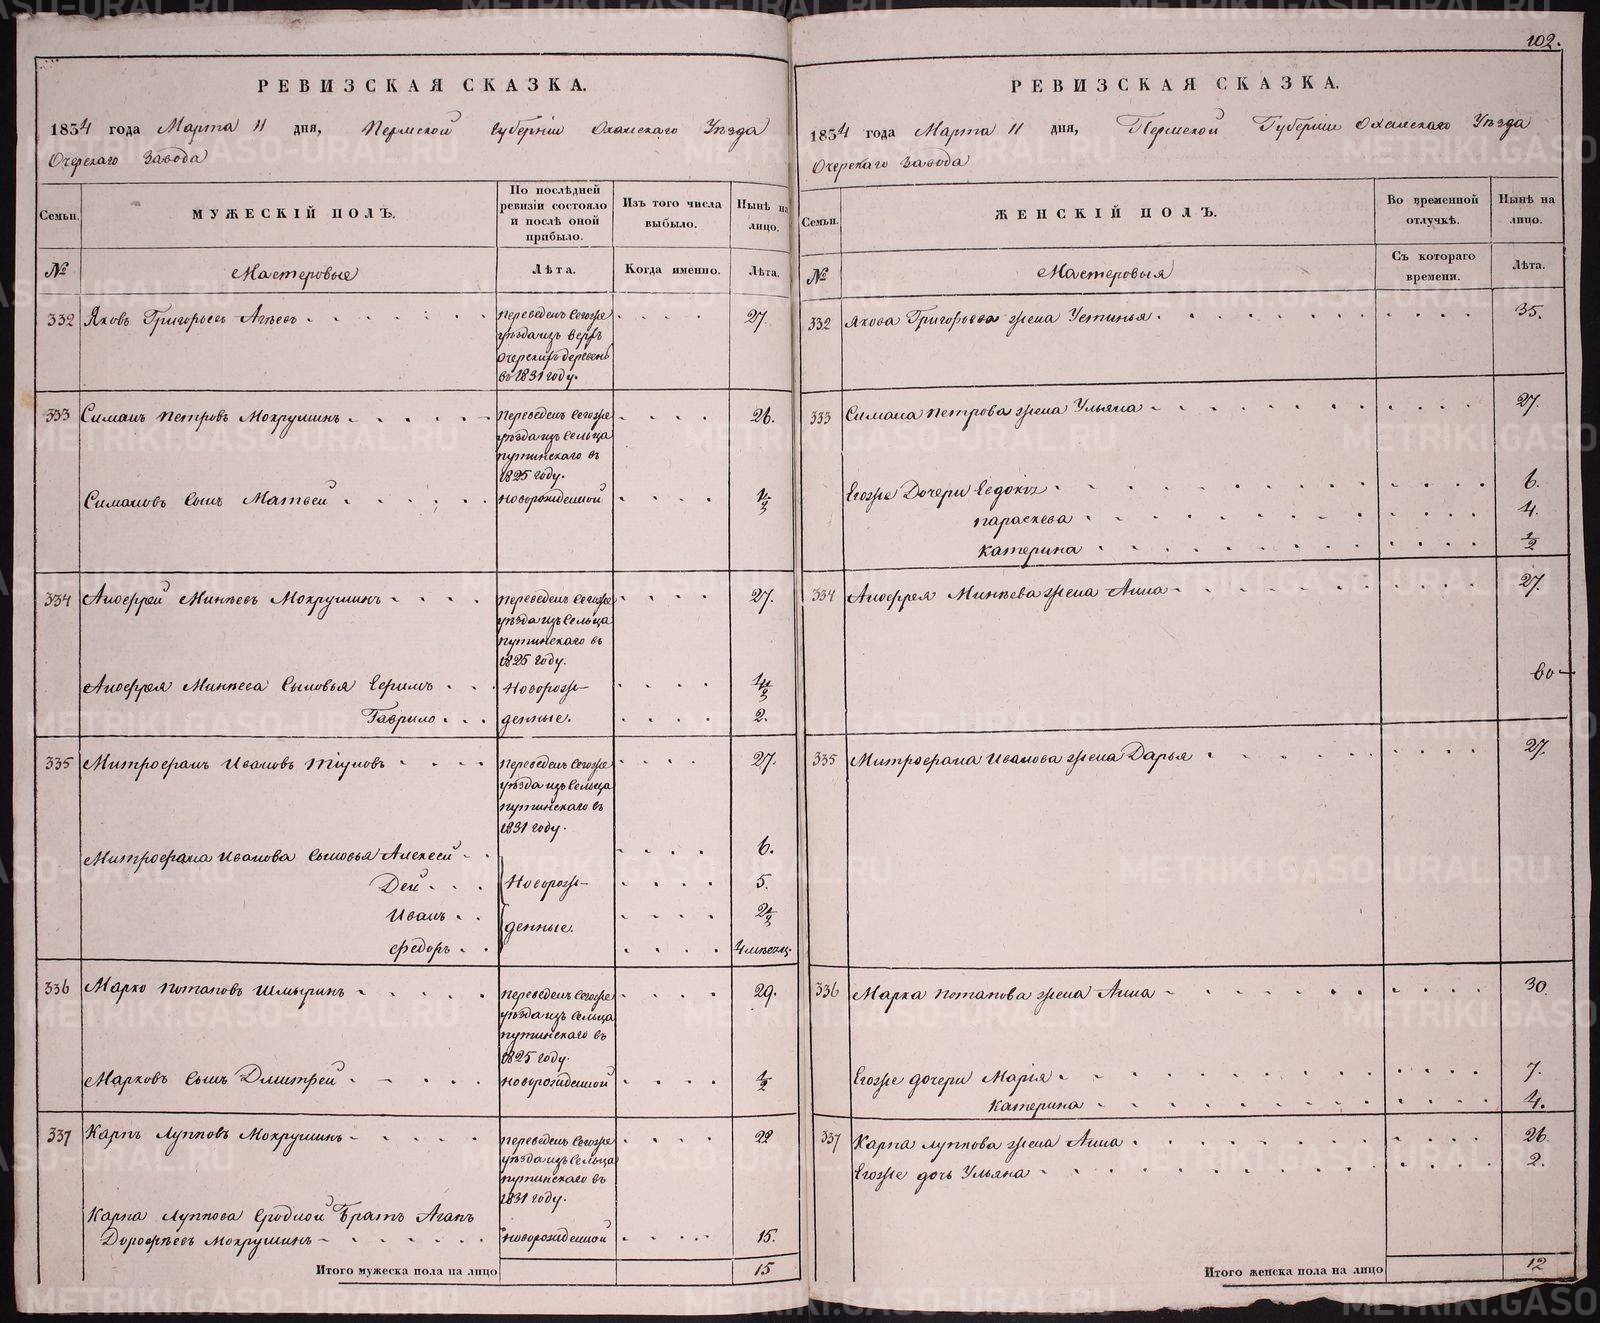 102.
РЕВИЗСКАЯ СКАЗКА.
1834 года Марта 11 дня, Пермской Губерніи Оханскаго Уѣзда
Очерскаго Завода
Семьи.
МУЖЕСКІЙ ПОЛЪ.
По послѣдней ревизіи состояло и послѣ оной прибыло.
Изъ того числа выбыло.
Нынѣ на лицо.
№
Мастеровые
Лѣта.
Когда именно.
Лѣта.
332 Яковъ Григорьевъ Агѣевъ
переведенъ Сегоже
уѣзда изъ Верхъ
Очерскихъ деревень
въ 1831 году.
27.
333 Симанъ Петровъ Мокрушинъ
переведенъ Сегоже
уѣзда изъ Сельца
путинскаго въ
1825 году.
26.
Симановъ Сынъ Матвей новорожденной ½
334 Андрей Минѣевъ Мокрушинъ
переведенъ Сегоже
уѣзда изъ Сельца
путинскаго въ
1825 году.
27.
Минѣева Сыновья Новорож-
Гаврило денные. 2.
335 Митрофанъ Ивановъ Тіуновъ
переведенъ Сегоже
уѣзда изъ Сельца
путинскаго въ
1831 году.
27.
Митрофана Иванова Сыновья Алексей 6.
Новорож- 5.
Иванъ 2½
денные.
Федоръ 4 месяц.
336 Марко Потаповъ Шмыринъ
переведенъ Сегоже
уѣзда изъ Сельца
путинскаго въ
1825 году.
29.
Марковъ Сынъ Дмитрей новорожденной ½
337 Карпъ Лупповъ Мокрушинъ
переведенъ Сегоже
уѣзда изъ Сельца
путинскаго въ
1831 году.
22
Карпа Луппова Сродной Братъ Агап
Дорофѣевъ Мокрушинъ новорожденной 15.
Итого мужеска пола на лицо 15
РЕВИЗСКАЯ СКАЗКА.
1834 года Марта 11 дня, Пермской Губерніи Оханскаго Уѣзда
Очерскаго Завода
Семьи.
ЖЕНСКІЙ ПОЛЪ.
Во временной отлучкѣ.
Нынѣ на лицо.
№
Мастеровыя
Съ котораго времени.
Лѣта.
332 Якова Григорьева жена Устинья 35.
333 Симана Петрова жена Ульяна 27.
Егоже Дочери Евдокія 6.
Параскева 4.
Катерина ½
334 Минѣева жена Анна 27.
335 Митрофана Иванова жена Дарья 27.
336 Марка Потапова жена Анна 30.
Егоже дочери Марія 7.
Катерина 4.
337 Карпа Луппова жена Анна 26.
Егоже дочь Ульяна 2.
Итого женска пола на лицо 12
METRIKI.GASO-URAL.RU